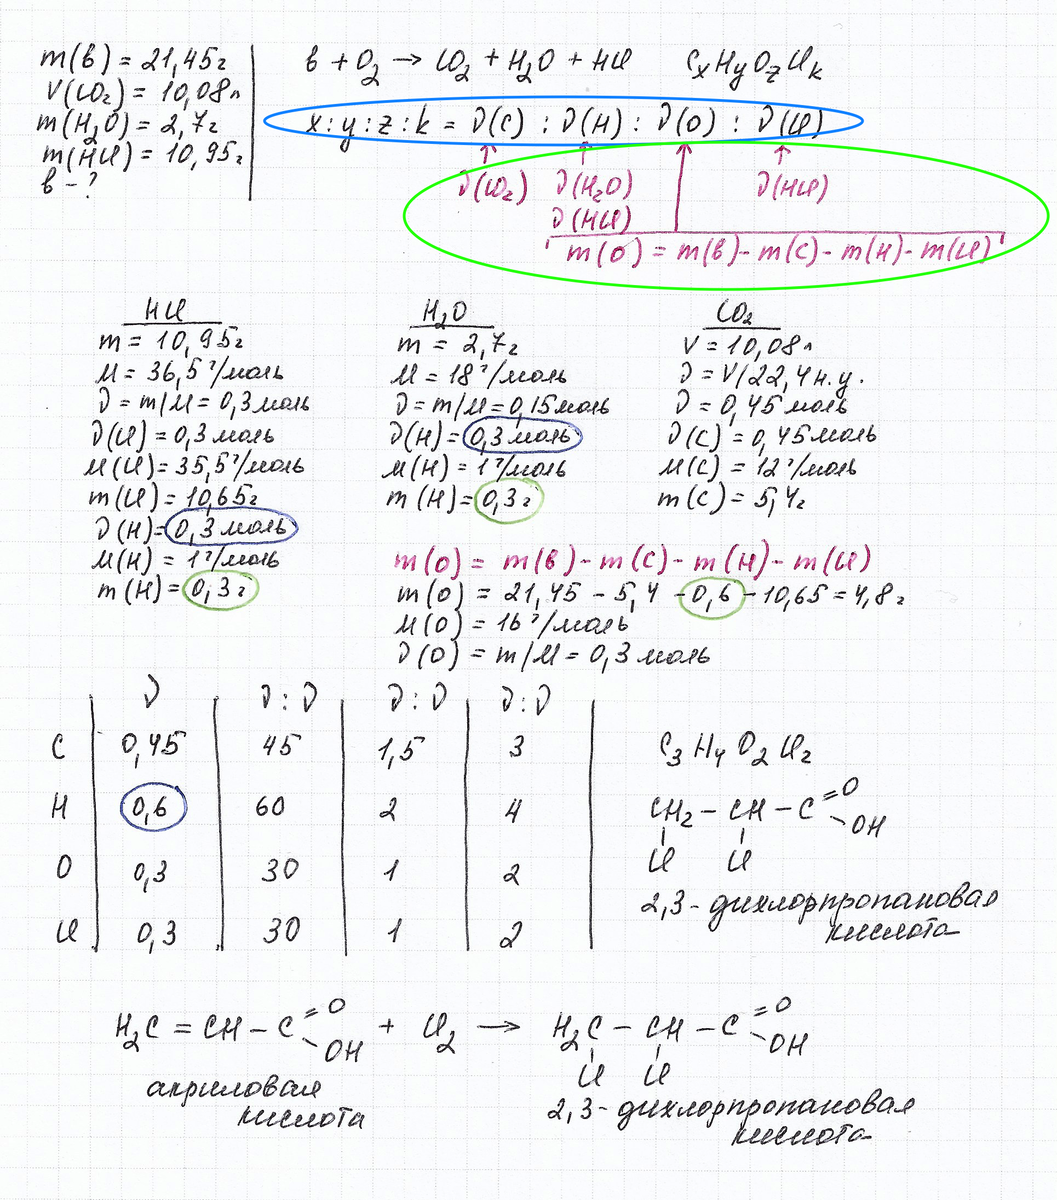 m(в) = 21,45г
V(CO₂) = 10,08л
m(H₂O) = 2,7г
m(HCl) = 10,95г
в - ?
в + O₂ → CO₂ + H₂O + HCl CxHyOzClk
x : y : z : k = ν(C) : ν(H) : ν(O) : ν(Cl)
↑ ↑ ↑ ↑
ν(CO₂) ν(H₂O) ν(HCl)
ν(HCl)
m(O) = m(в) - m(C) - m(H) - m(Cl)
HCl
m = 10,95г
M = 36,5 г/моль
ν = m/M = 0,3 моль
ν(Cl) = 0,3 моль
M(Cl) = 35,5 г/моль
m(Cl) = 10,65г
ν(H) = 0,3 моль
M(H) = 1 г/моль
m(H) = 0,3 г
H₂O
m = 2,7г
M = 18 г/моль
ν = m/M = 0,15 моль
ν(H) = 0,3 моль
M(H) = 1 г/моль
m(H) = 0,3 г
CO₂
V = 10,08 л
ν = V/22,4 н.у.
ν = 0,45 моль
ν(C) = 0,45 моль
M(C) = 12 г/моль
m(C) = 5,4г
m(O) = m(в) - m(C) - m(H) - m(Cl)
m(O) = 21,45 - 5,4 - 0,6 - 10,65 = 4,8г
M(O) = 16 г/моль
ν(O) = m/M = 0,3 моль
ν ν:ν ν:ν ν:ν
C 0,45 45 1,5 3
H 0,6 60 2 4
O 0,3 30 1 2
Cl 0,3 30 1 2
C₃H₄O₂Cl₂
CH₂ - CH - C =O
- OH
Cl Cl
2,3-дихлорпропановая
кислота
H₂C = CH - C =O - OH + Cl₂ → H₂C - CH - C =O - OH
Cl Cl
акриловая
кислота
2,3-дихлорпропановая
кислота